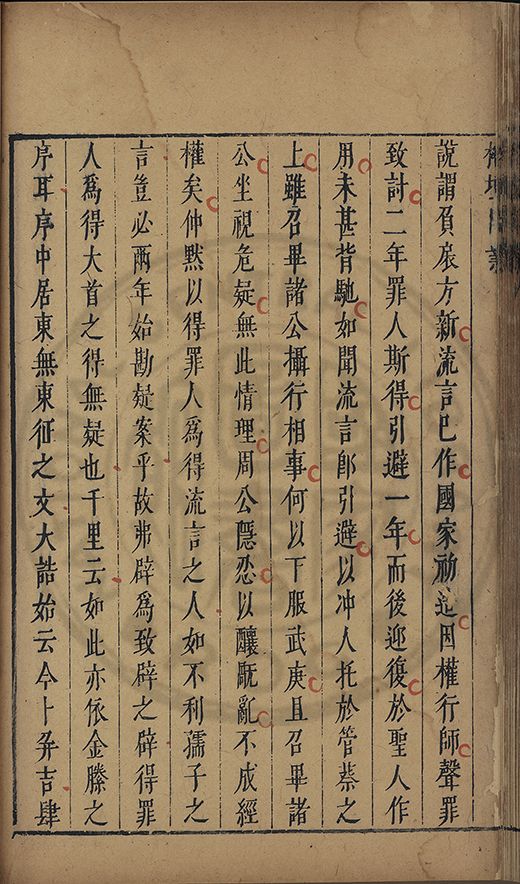 說謂負扆方新流言已作國家初造因權行師聲罪
致討二年罪人斯得引避一年而後迎復於聖人作
用未甚背馳如聞流言即引避以冲人托於管蔡之
上雖召畢諸公攝行相事何以下服武庚且召畢諸
公坐視危疑無此情理周公隱忍以釀厩亂不成經
權矣仲默以得罪人為得流言之人如不利孺子之
言豈必兩年始勘疑案乎故弗辟為致辟之辟得罪
人爲得大首之得無疑也千里云如此亦依金縢之
序耳序中居東無東征之文大誥始云今卜并吉肆